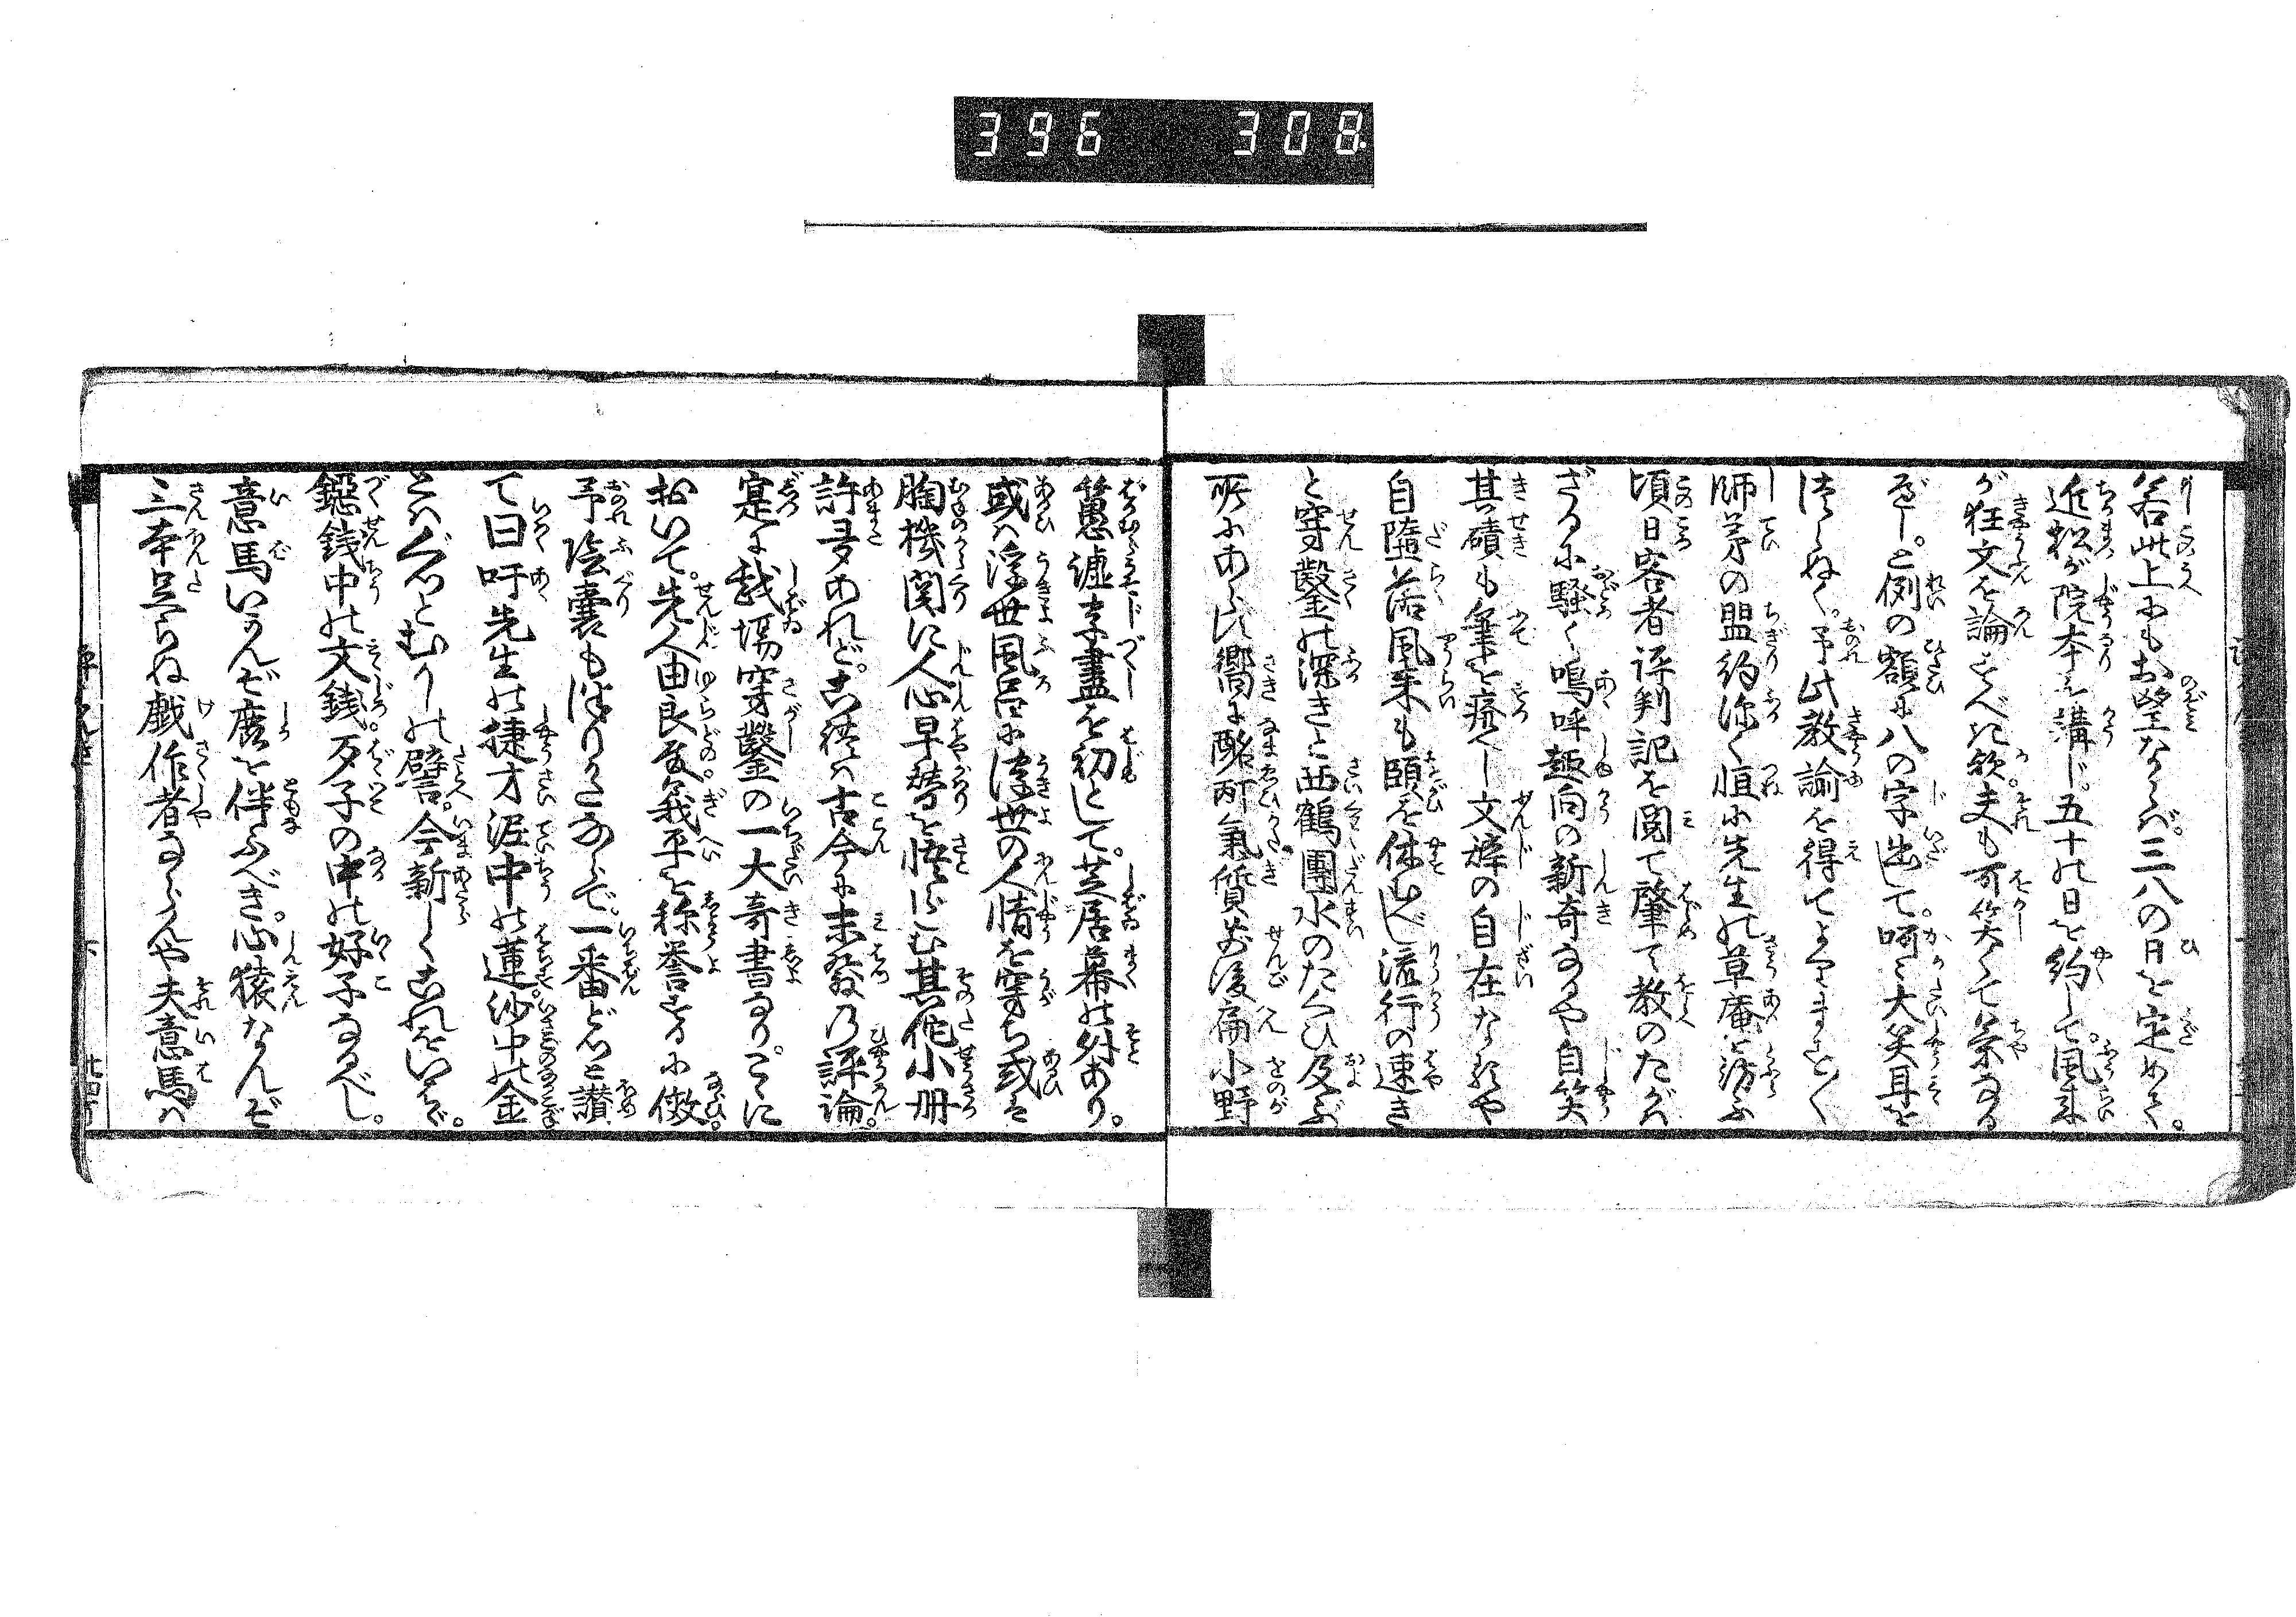 396 308
若此上にもお望ならば。三八の日を定めて。
近松が院本を講じ。五十の日を約して。風来
が狂文を論ずべき歟。夫も可笑くて策なる
べし。と例の額に八の字出して。呵々大笑耳を
つらぬく。予此教諭を得てよりますます
師弟の盟約深く恒に先生の草庵を訪ふ
頃日客者評判記を閲て肇て教のたがは
ざるに騒く嗚呼趣向の新奇なるや自笑
其磧も筆を痿くし文辞の自在なるや
自堕落風来も頤を休むべし流行の速き
と穿鑿の深きと西鶴團水のたぐひ及ぶ
所にあらず嚮に酩酊気質前後扁小野
𥳑虚字盡を初として。芝居幕の外あり。
或は浮世風呂に浮世の人情を穿ち或は
胸機関に人心早替を悟らしむ其他小冊
許多あれど。此様は古今に未発の評論。
寔に戯場穿鑿の一大奇書なり。ここに
於いて。先人由良殿。義平を称誉するに倣ひ。
予陰嚢も
ならで。一番どつと讃
て曰吁先生の捷才泥中の蓮沙中の金
とはぐつとむかしの譬。今新しくこれをいはば。
鐚銭中の文銭。歹子の中の好子なるべし。
意馬いかんぞ鹿を伴ふべき。心猿なんぞ
三本足らぬ戯作者ならんや夫意馬は